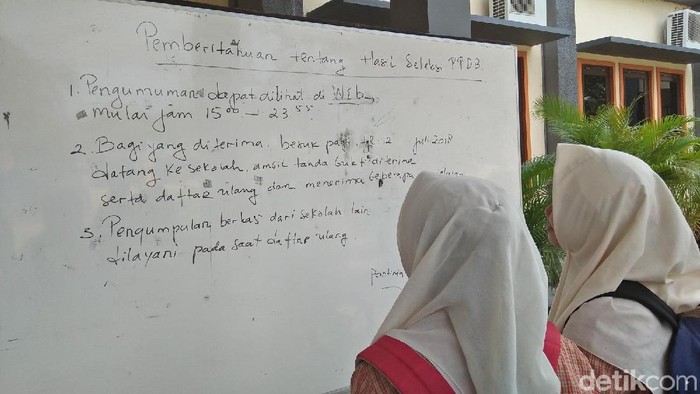 Pemberitahuan tentang Hasi Seleksi PPDB
1. Pengumuman dapat dilihat di WEb
mulai jam 15⁰⁰ - 23⁵⁵
2. Bagi yang diterima besuk pagi 2 Juli 2018
datang ke sekolah ambil tanda bukti diterima
serta daftar ulang dan menerima beberapa
3. Pengumpulan berkas dari sekolah lain
dilayani pada saat daftar ulang
detikcom